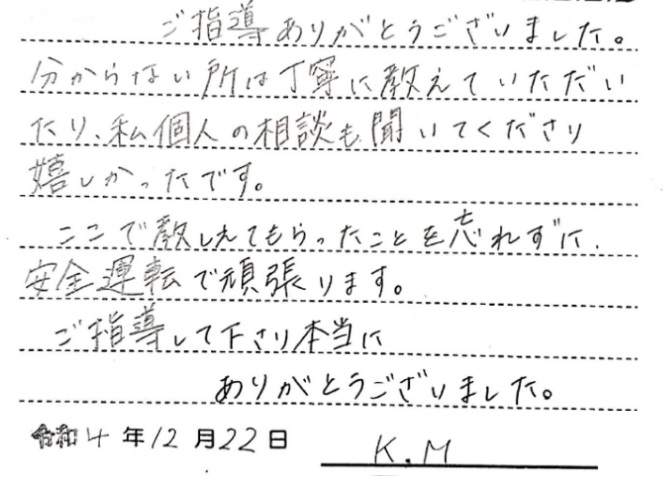 ご指導ありがとうございました。
分からない所は丁寧に教えていただい
たり、私個人の相談も聞いてくださり
嬉しかったです。
ここで教しえてもらったことを忘れずに、
安全運転で頑張ります。
ご指導して下さり本当に
ありがとうございました。
令和4年12月22日 K.M